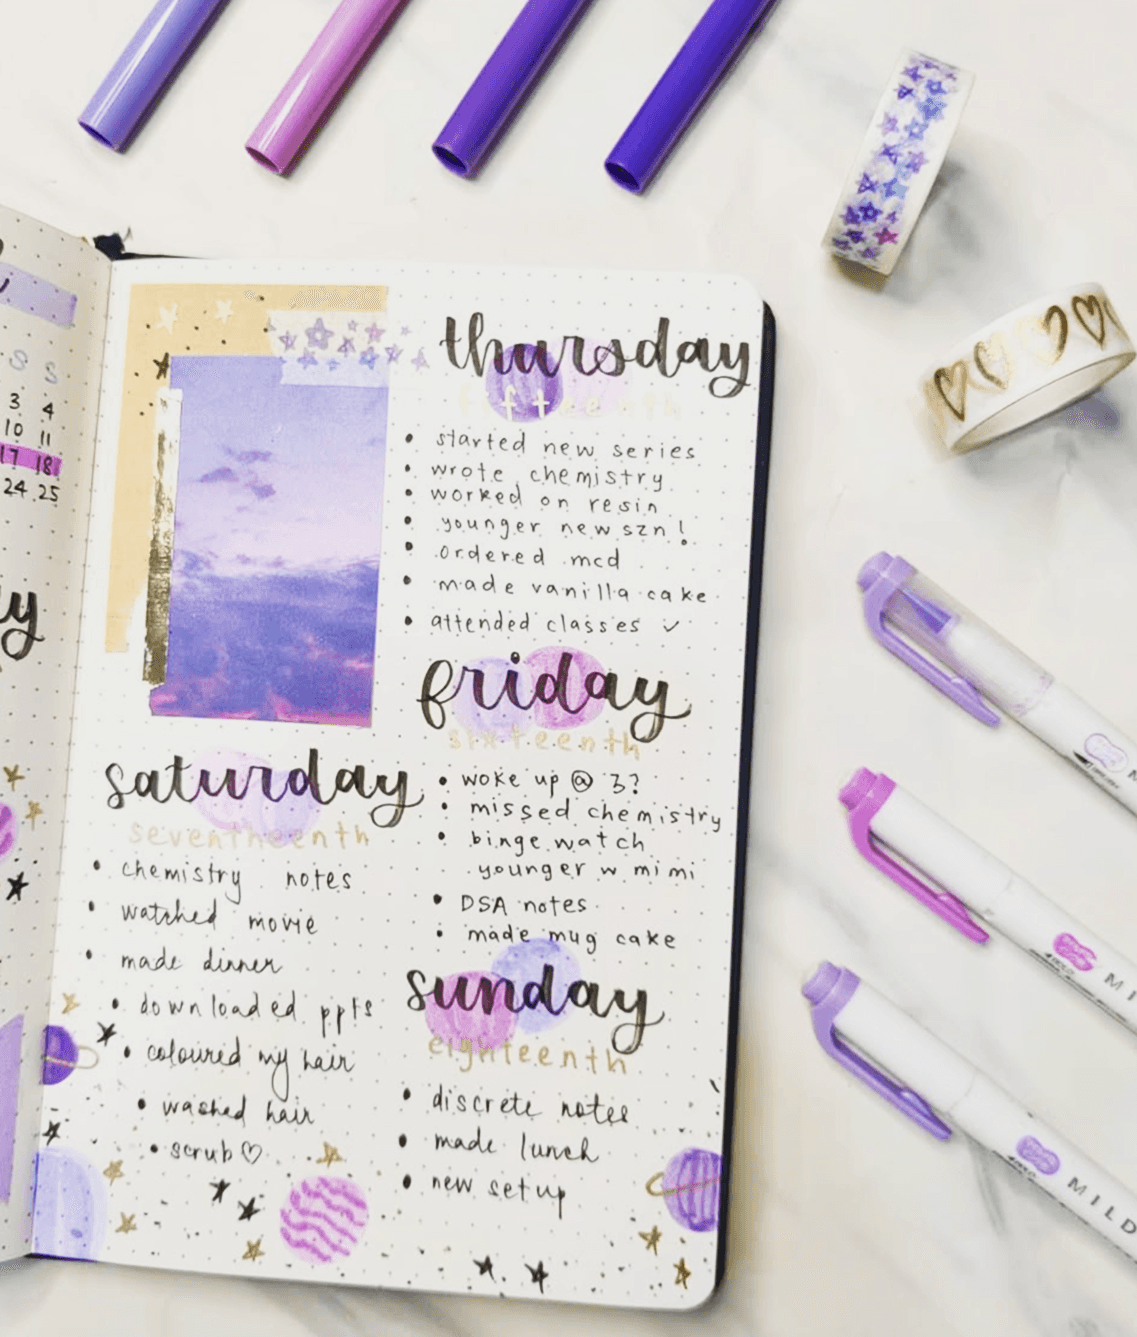 S S
3 4
10 11
17 18
24 25
y
thursday
fifteenth
• started new series
• wrote chemistry
• worked on resin
• younger new szn!
• ordered mcd
• made vanilla cake
• attended classes ✓
friday
sixteenth
• woke up @ 3?
• missed chemistry
• binge watch
younger w mimi
• DSA notes
• made mug cake
saturday
seventheenth
• chemistry notes
• watched movie
• made dinner
• downloaded ppts
• coloured my hair
• washed hair
• scrub♡
sunday
eighteenth
• discrete notes
• made lunch
• new setup
M
MI
MILD